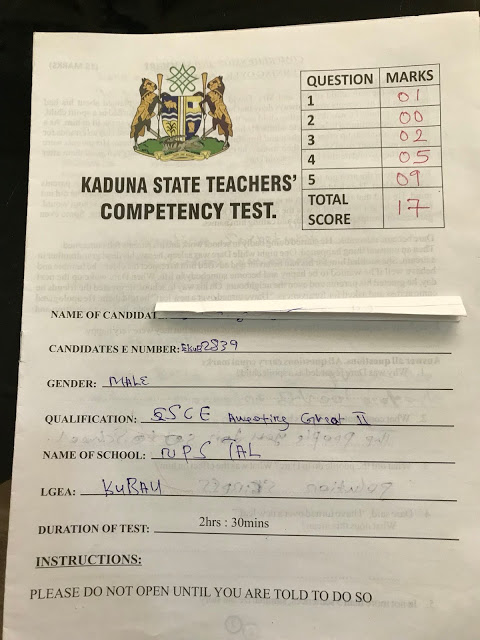 QUESTION MARKS
1 01
2 00
3 02
4 05
5 09
TOTAL SCORE 17
KADUNA STATE TEACHERS'
COMPETENCY TEST.
NAME OF CANDIDAT
CANDIDATES E NUMBER: 2839
GENDER: MALE
QUALIFICATION: SSCE Awaiting Great II
NAME OF SCHOOL: TAL
LGEA: KUBAU
DURATION OF TEST: 2hrs : 30mins
INSTRUCTIONS:
PLEASE DO NOT OPEN UNTIL YOU ARE TOLD TO DO SO